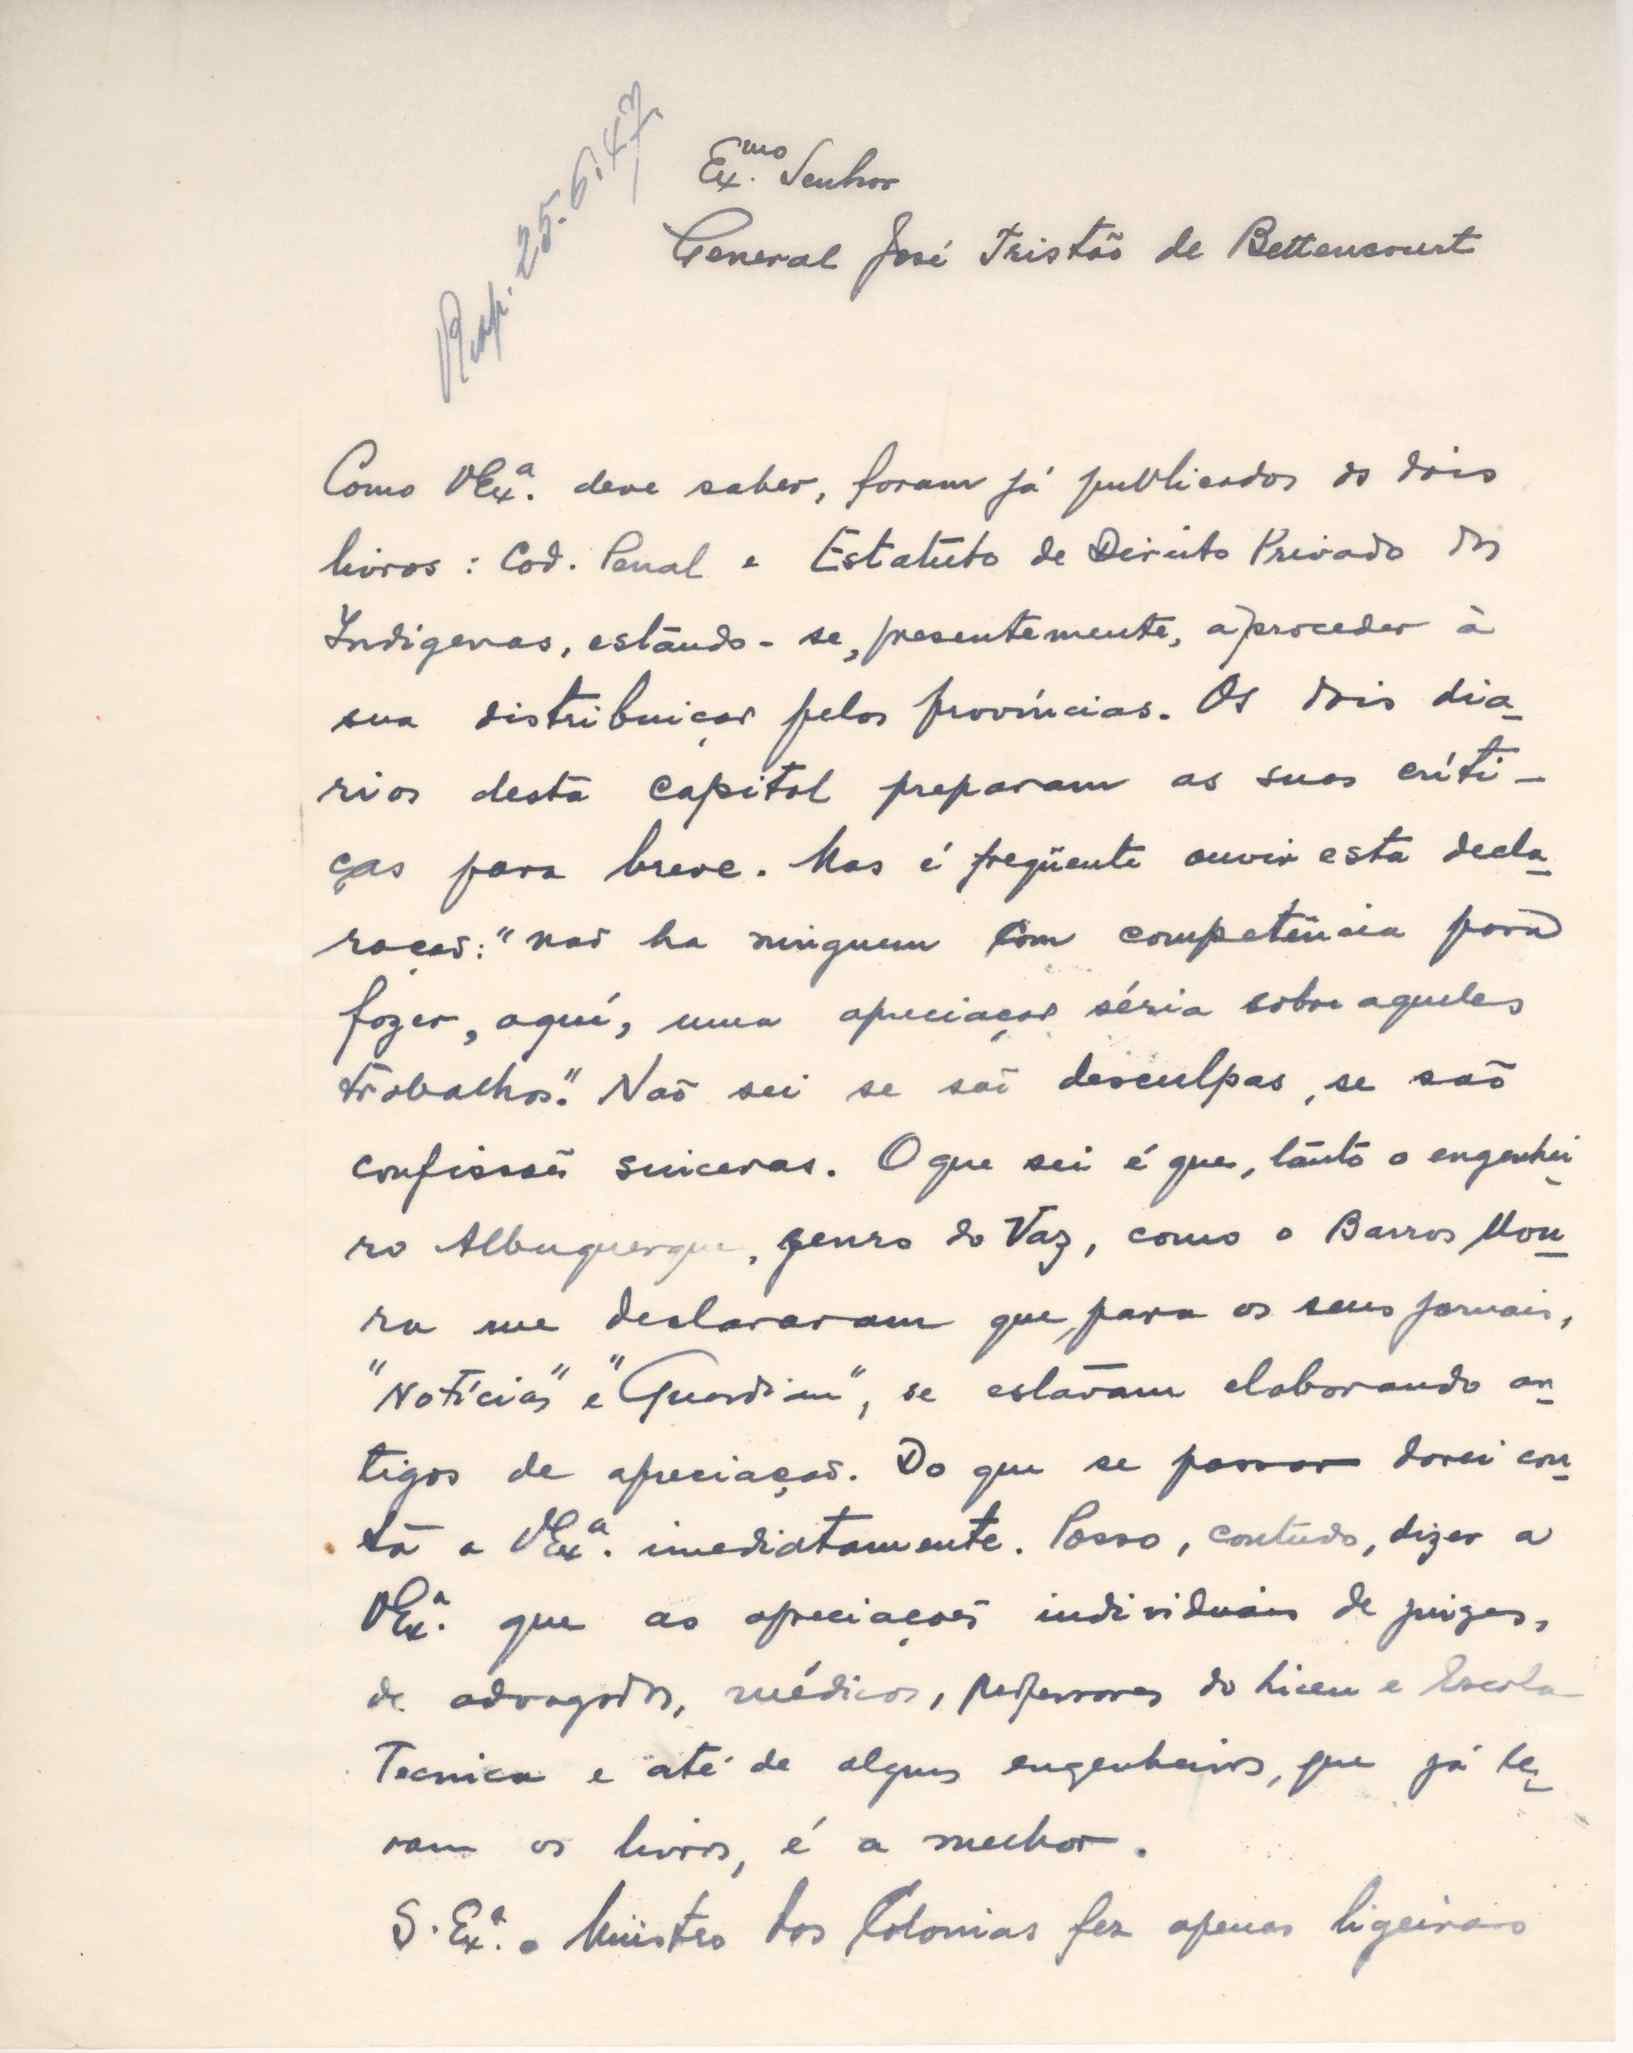 Resp. 25.6.47
Ex.mo Senhor
General José Tristão de Bettencourt
Como V Ex.a deve saber, foram já publicados os dois
livros: Cod. Penal e Estatuto de Direito Privado dos
Indigenas, estando-se, presentemente, a proceder à
sua distribuição pelos províncias. Os dois dia-
rios desta capital preparam as suas críti-
ças para breve. Mas é freqüente ouvir esta decla-
ração: "não ha ninguem com competência para
fazer, aquí, uma apreciação séria sobre aqueles
trabalhos." Não sei se são desculpas, se são
confissões sinceras. O que sei é que, tanto o engenhei-
ro Albuquerque, genro do Vaz, como o Barros Mou-
ra me declararam que, para os seus jornais,
"Notícias" e "Guardian", se estavam elaborando ar-
tigos de apreciação. Do que se passar darei con-
ta a V Ex.a imediatamente. Posso, contudo, dizer a
V Ex.a que as apreciações individuais de juizes,
de advogados, médicos, professores do Liceu e Escola
Tecnica e até de alguns engenheiros, que já le-
ram os livros, é a melhor.
S. Ex.a o Ministro das Colonias fez apenas ligeirais